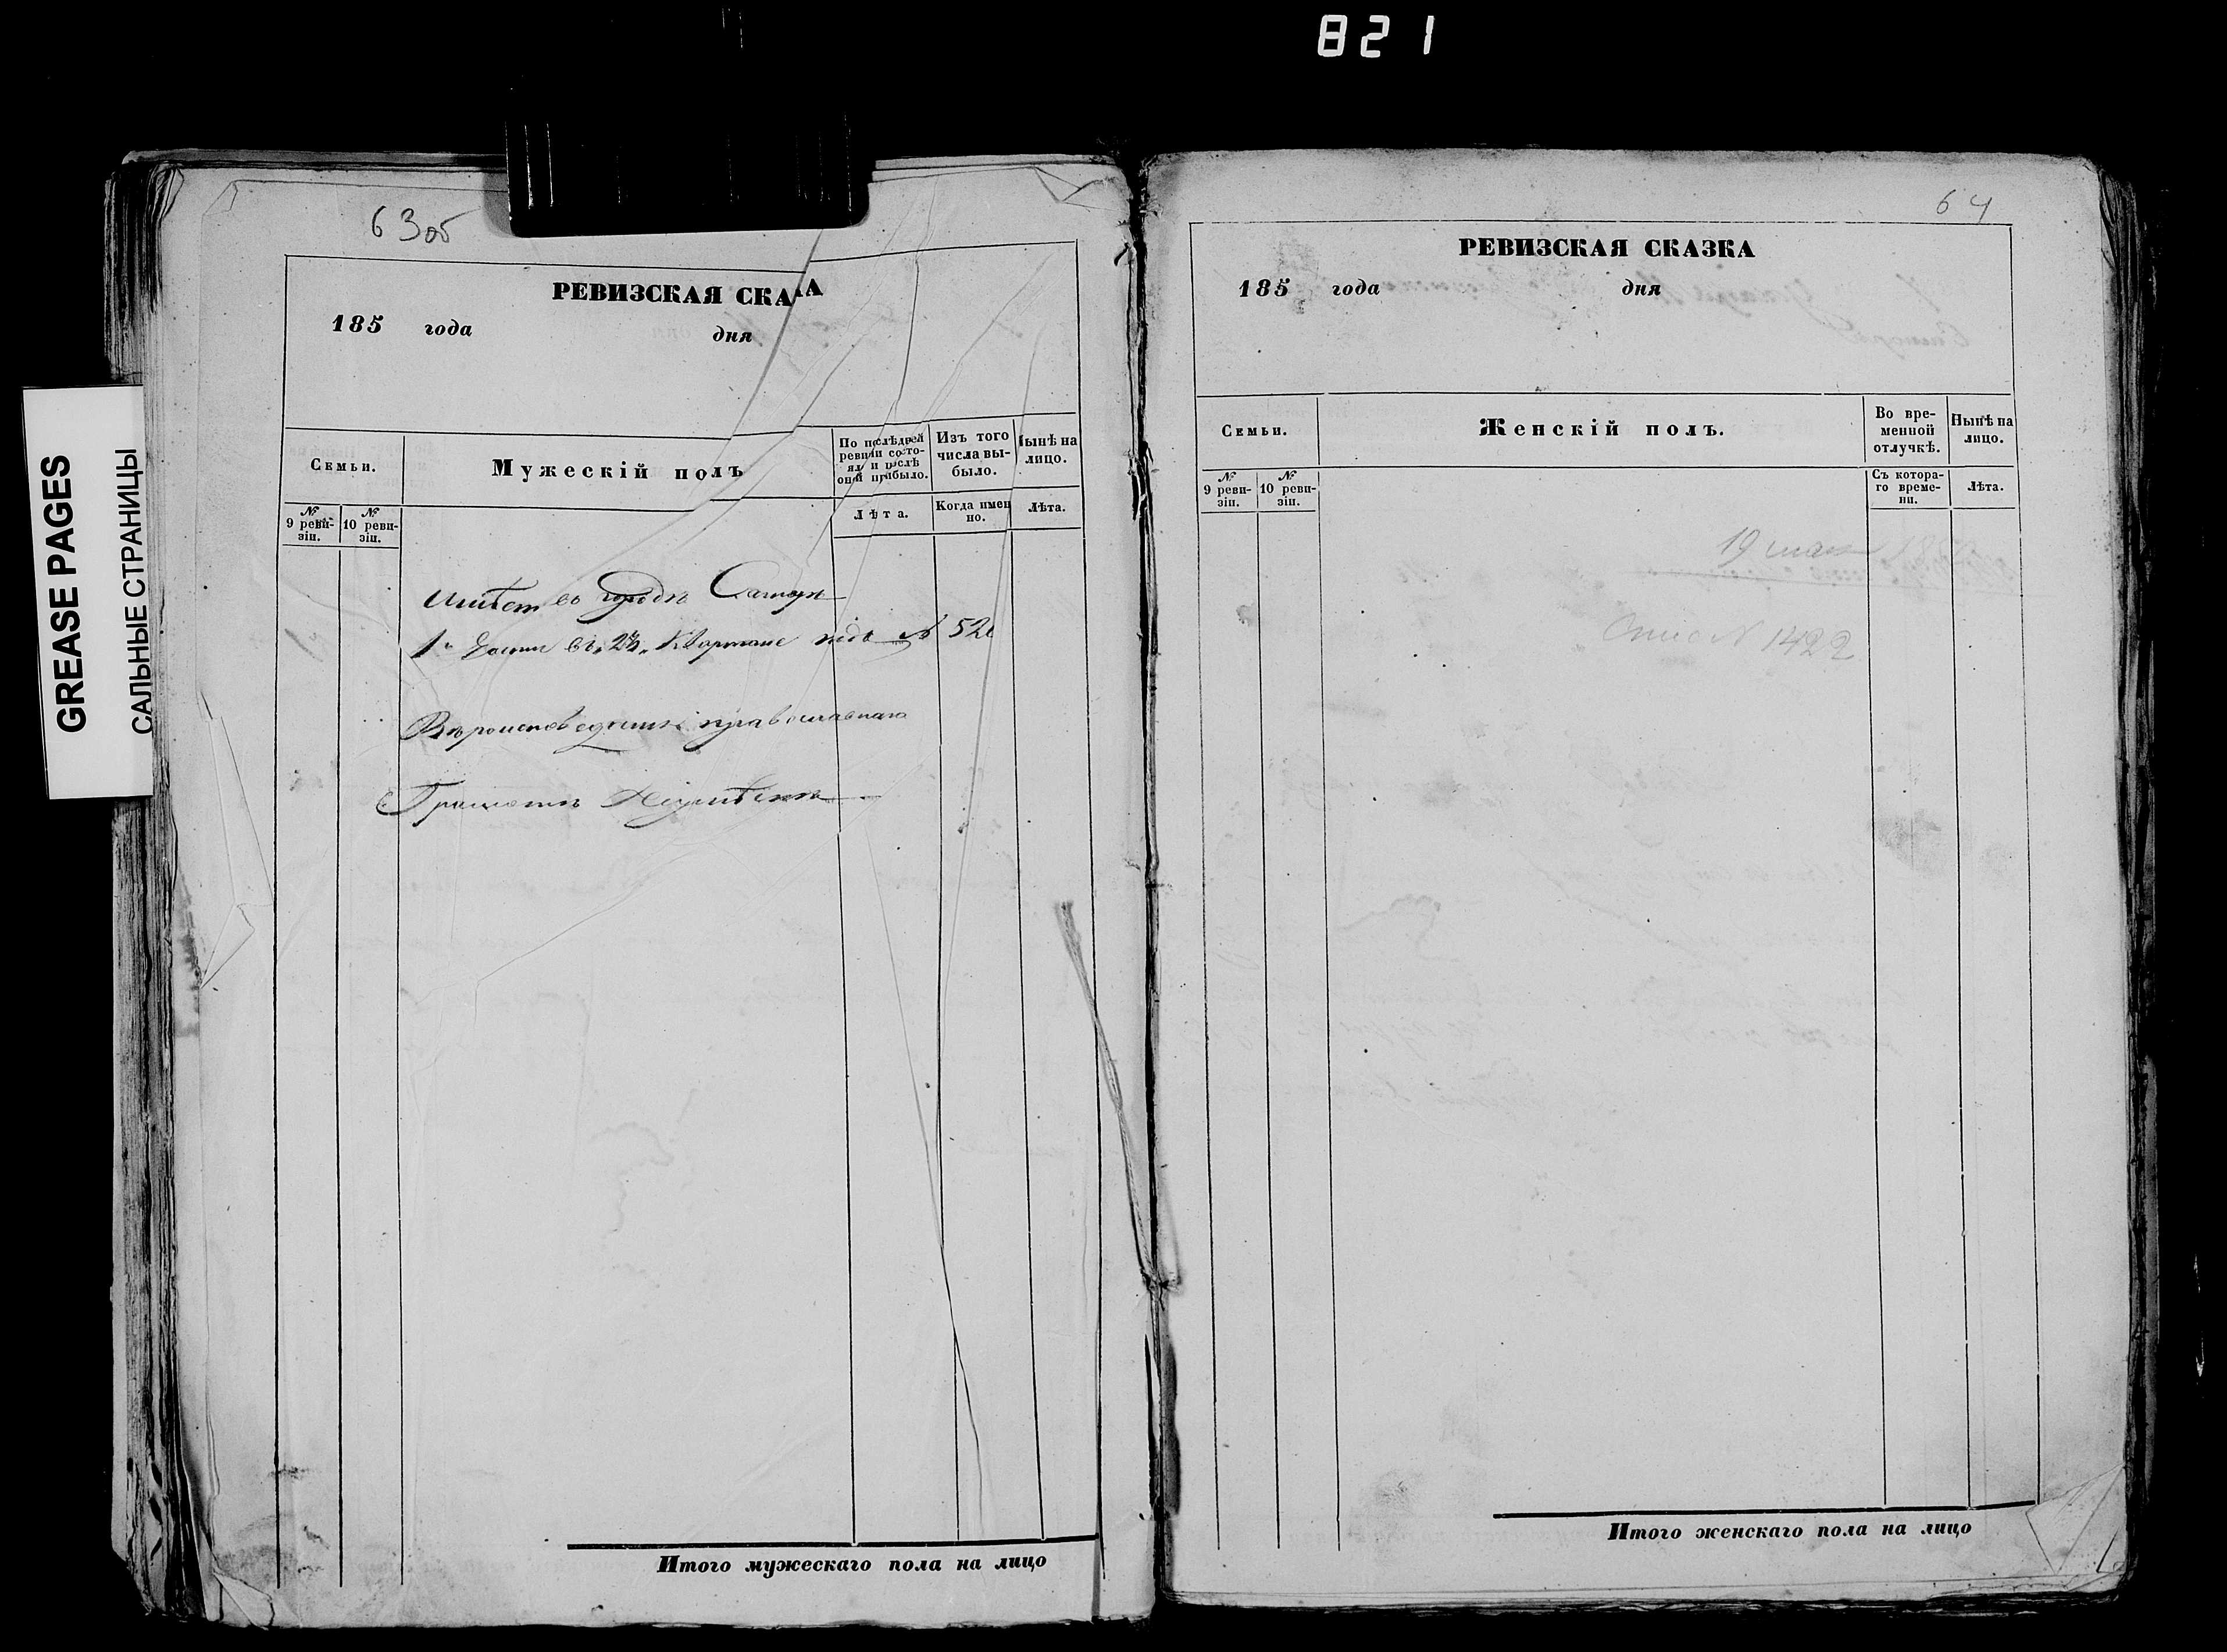 821
GREASE PAGES
САЛЬНЫЕ СТРАНИЦЫ
63об
РЕВИЗСКАЯ СКА А
185 года дня
Семьи.
Мужескій полъ
По послѣдней ревизіи состоял и послѣ оной прибыло.
Изъ того числа выбыло.
Нынѣ на лицо.
№ 9 ревизіи.
№ 10 ревизіи.
Лѣта.
Когда имен но.
Лѣта.
въ городѣ
1й Части въ 2м Квартале подъ № 520
Вѣроисповеданія православнаго
Грамотѣ
Итого мужескаго пола на лицо
64
РЕВИЗСКАЯ СКАЗКА
185 года дня
Семьи.
Женскій полъ.
Во временной отлучкѣ.
Нынѣ на лицо.
№ 9 ревизіи.
№ 10 ревизіи.
Съ котораго времени.
Лѣта.
19
№ 1422
Итого женскаго пола на лицо